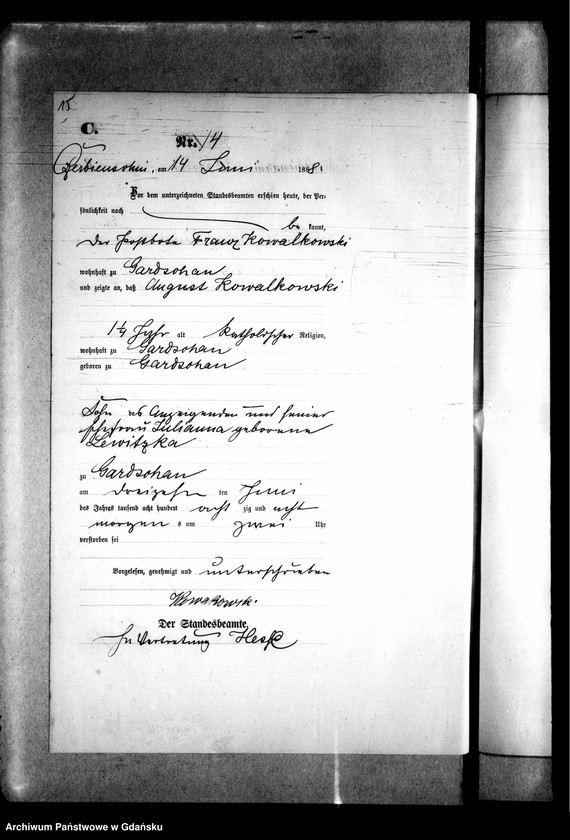 15
C.
Nr. 14
am 14 Juni 1888
Vor dem unterzeichneten Standesbeamten erschien heute, der Per-
sönlichkeit nach
be kannt,
der Postbote Franz Kowalkowski
wohnhaft zu Gardschau
und zeigte an, daß August Kowalkowski
1 1/4 Jahr alt katholischer Religion,
wohnhaft zu Gardschau
geboren zu Gardschau
Sohn des Anzeigenden und seiner
Ehefrau Julianna geborene
Lewitzka
zu Gardschau
am dreizehn ten Juni
des Jahres tausend acht hundert acht zig und acht
morgen s um zwei Uhr
verstorben sei
Vorgelesen, genehmigt und unterschrieben
Kowalkowski.
Der Standesbeamte.
In Vertretung
Archiwum Państwowe w Gdańsku